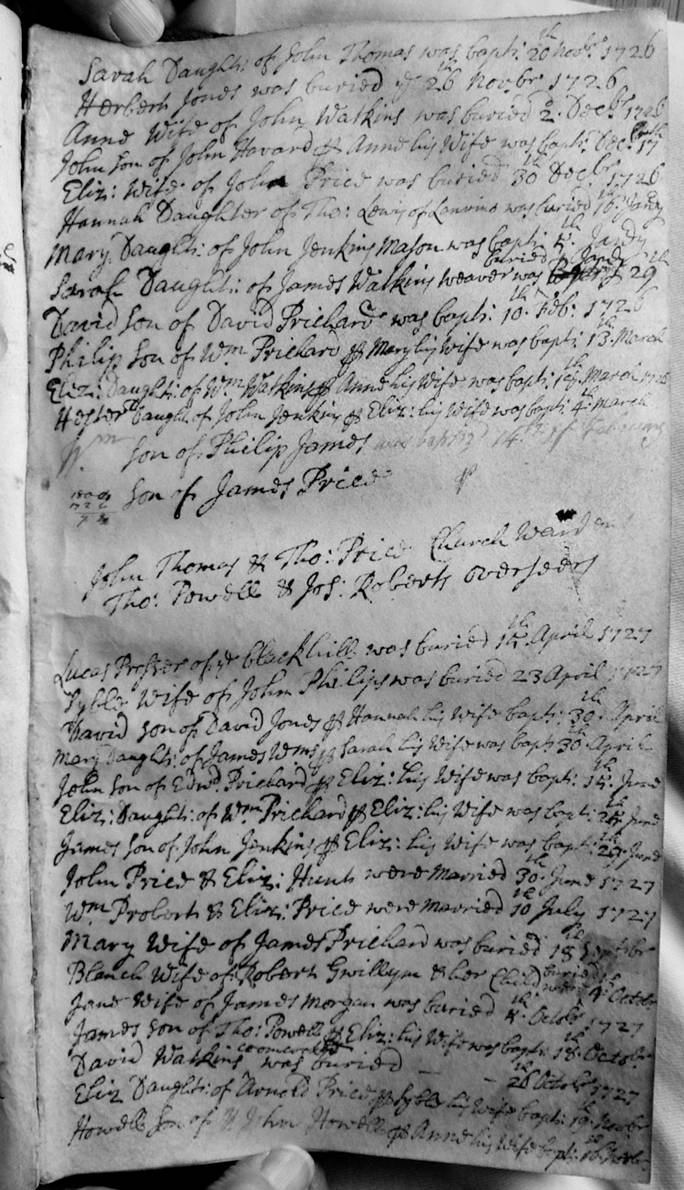 Sarah Daught: of John Thomas was bapt: 20th Novbr 1726
Herbert Jones was buried ye 26th Novbr 1726
Anne Wife of John Watkins was buried 2d Decbr 1726
John Son of John Havard & Anne his Wife was bapt: Decbr 17
Eliz: Wife of John Price was buried 30th Decbr 1726
Hannah Daughter of Tho: Lewis of was buried
Mary Daught: of John Jenkins Mason was bapt:
Sarah Daught: of James Watkins weaver was buried 29th
David Son of David Prichard was bapt: 10th Feb: 1726
Philip Son of Wm Prichard & Mary his Wife was bapt: 13th March
Eliz: Daught: of Wm Watkins & Anne his Wife was bapt: March
Hester Daught of John Jenkins & Eliz: his Wife was bapt: 4th March
Wm Son of Philip James was 14th of
Son of James Price
John Thomas & Tho: Price Church Wardens
Tho: Powell & Jos: Roberts overseers
Lucas Prosser of ye blackhill was buried April 1727
Syble Wife of John Philips was buried 23 April 1727
David Son of David Jones & Hannah his Wife bapt: 30th April
Mary Daught: of James Wms & Sarah his Wife was bapt 30th April
John Son of Edwd Prichard & Eliz: his Wife was bapt: June
Eliz: Daught: of Wm Prichard & Eliz: his Wife was bapt: June
James Son of John Jenkins & Eliz: his Wife was bapt: June
John Price & Eliz: Hunt were Married 30th June 1727
Wm Probert & Eliz: Price were Married 10th July 1727
Mary Wife of James Prichard was buried 18th Septebr
Blanch Wife of Robert Gwillym & her Child were buried 4th Octobr
Jane Wife of James Morgan was buried Octobr 1727
James Son of Tho: Powell & Eliz: his Wife was bapt: 18th Octobr
David Watkins was buried - - 26th Octobr 1727
Eliz Daught: of Arnold Price & Syble his Wife bapt: 19th Novbr
Howell Son of John Howell & Anne his Wife bapt: Novbr